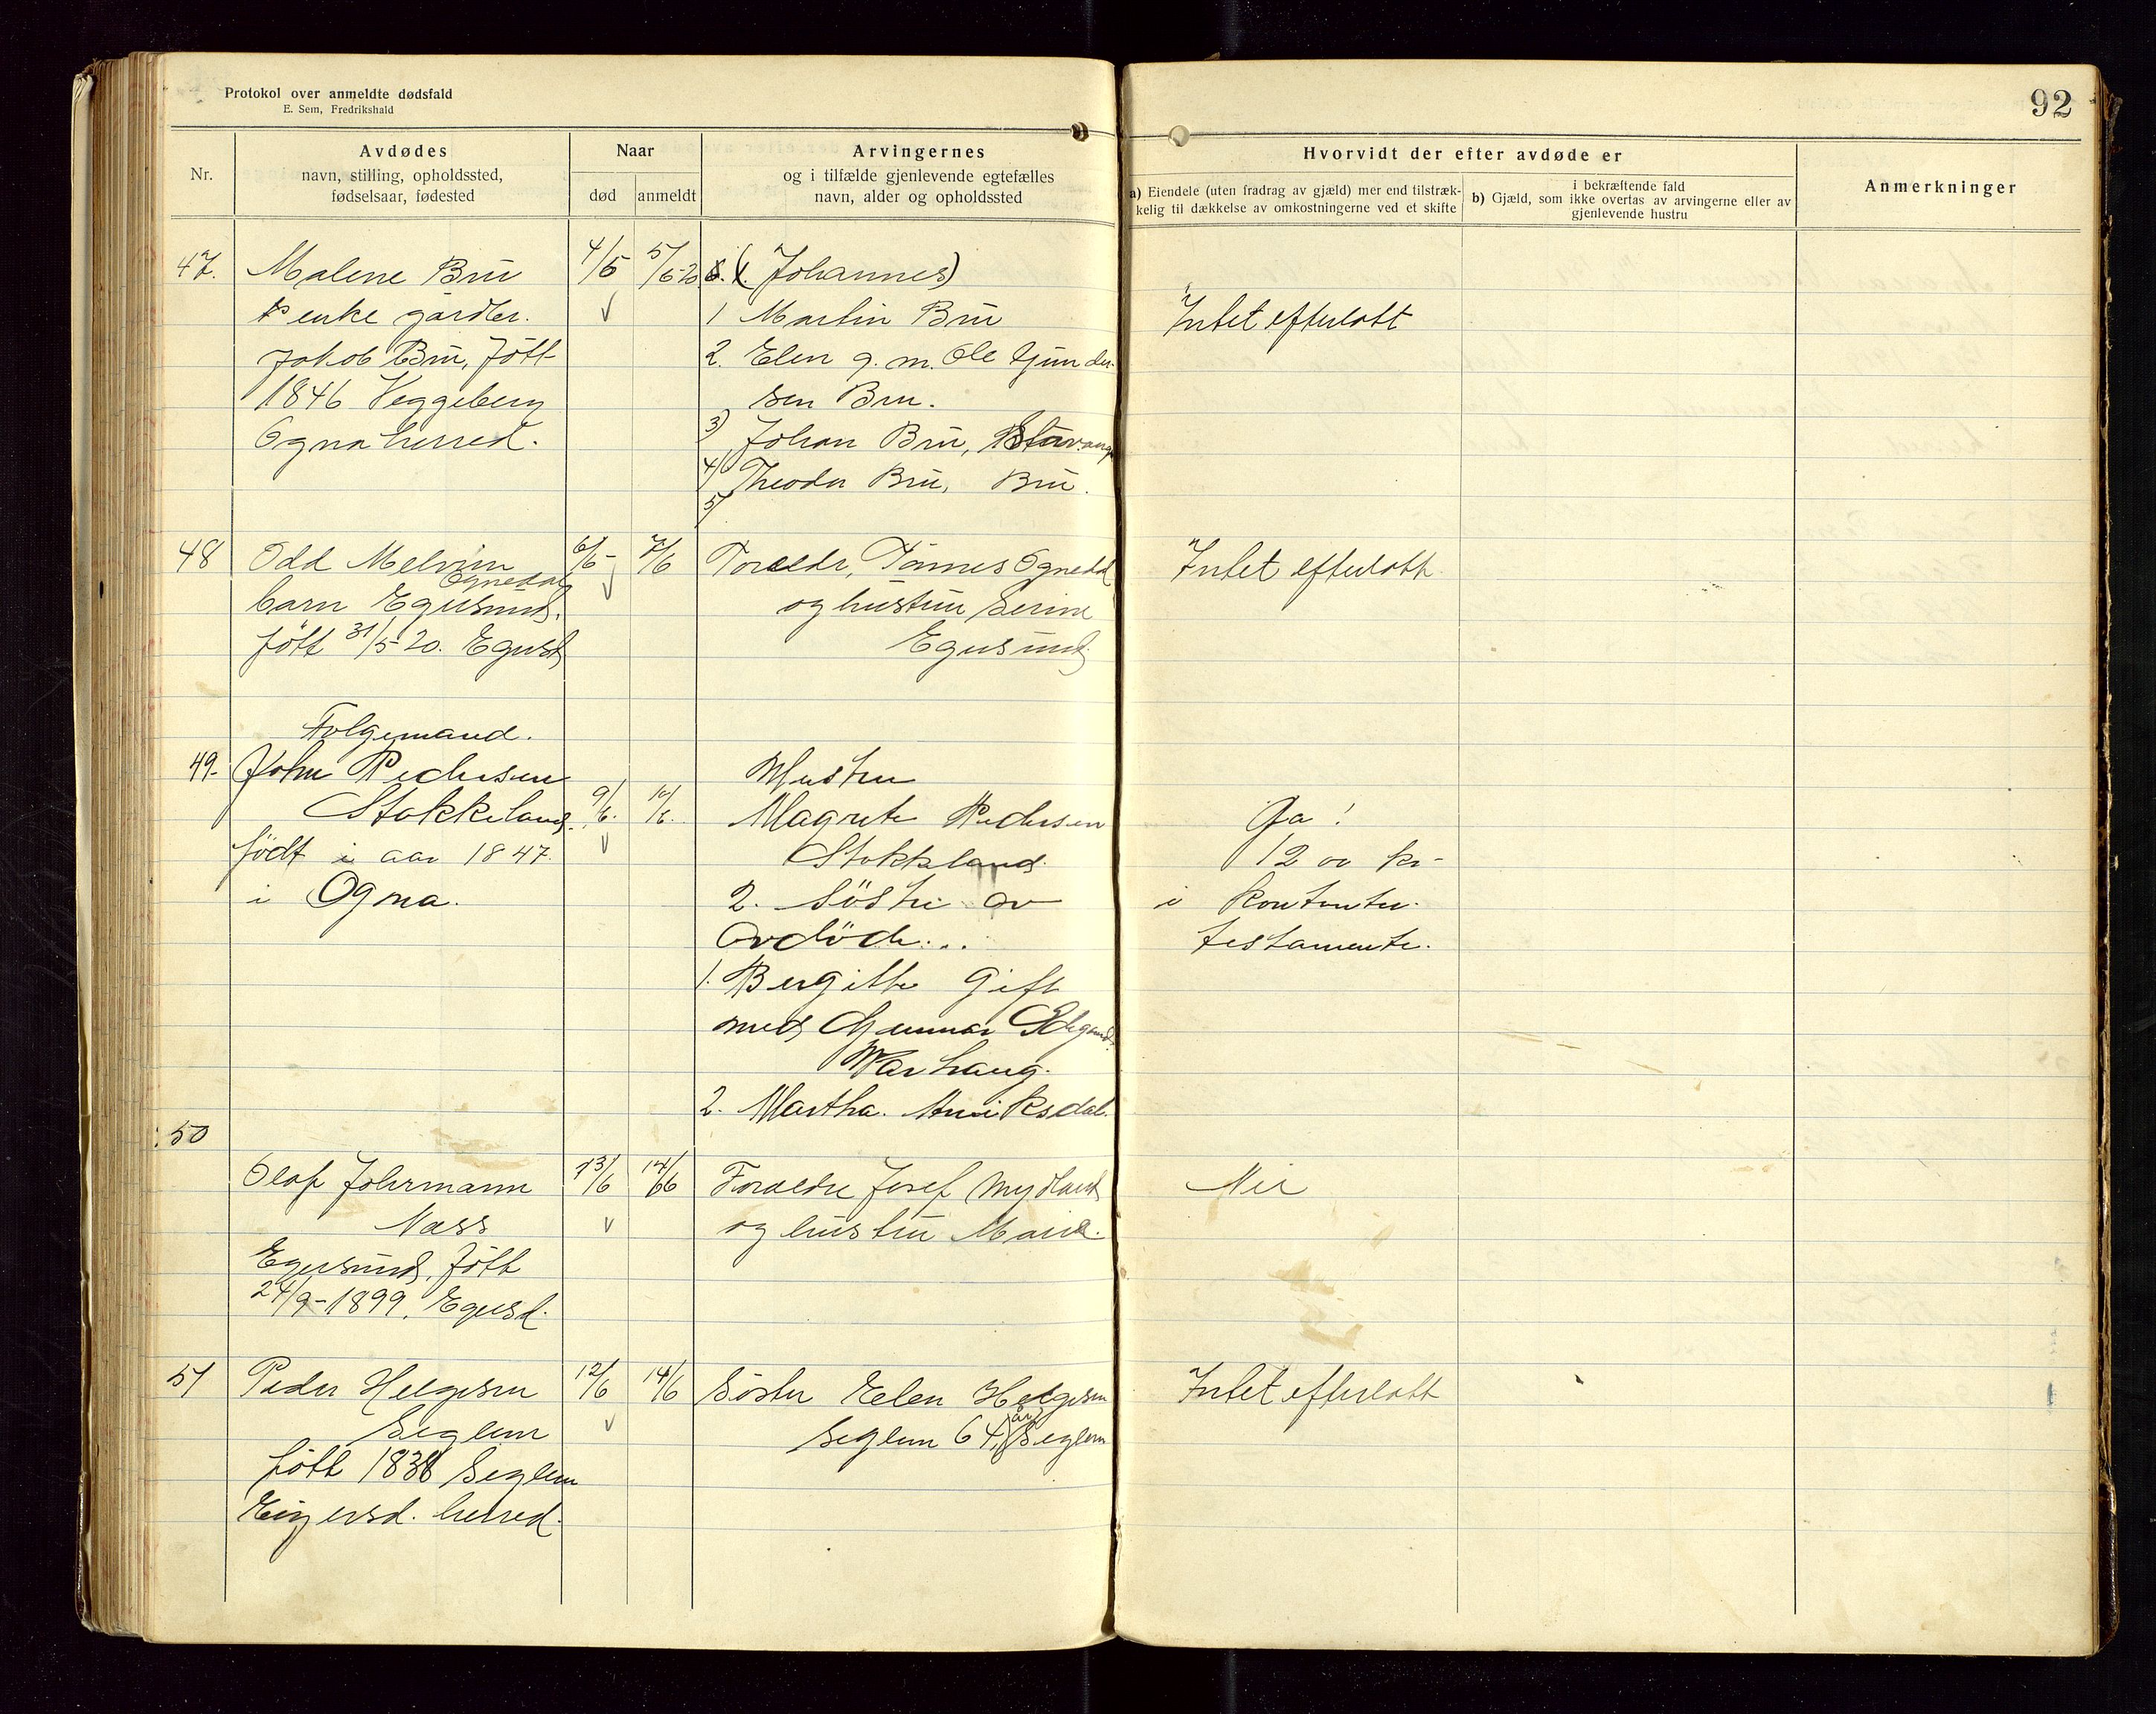 Protokol over anmeldte dødsfald
E. Sem, Fredrikshald
92
Nr.
Avdødes
navn, stilling, opholdssted,
fødselsaar, fødested
Naar
død
anmeldt
Arvingernes
og i tilfælde gjenlevende egtefælles
navn, alder og opholdssted
Hvorvidt der efter avdøde er
a) Eiendele (uten fradrag av gjæld) mer end tilstræk-
kelig til dækkelse av omkostningerne ved et skifte
i bekræftende fald
b) Gjæld, som ikke overtas av arvingerne eller av
gjenlevende hustru
Anmerkninger
47. Malene Bru 4/6 5/6-20 (Johannes)
enke gårdbr. √ 1 Martin Bru Intet efterlatt
Jakob Bru, født 2. Elen g. m. Ole Gunder-
1846 Veggeberg sen Bru.
Ogna herred. 3) Johan Bru, Stavanger
4) Theodor Bru, Bru.
5)
48 Odd Melvin 6/6- 7/6 Foreldr, Tønnes Ognedal Intet efterlatt
Ognedal
barn Egersund. √ og hustru Serine
født 31/5-20. Egersd Egersund
Følgemand.
49- John Pedersen Hustru
Stokkeland. 9/6. 10/6. Magrete Pedersen Ja!
født i aar 1847. √ Stokkland. 1200 kr-
i Ogna. 2. Søstre av i kontanter.
Avdøde... testamente.
1. Bergitte Gift
med Gunnar Ødegaard.
Varhaug.
2. Martha.
50
Olaf Johrmann 13/6 14/6 Foreldre Josef Mydland Nei
Næss √ og hustru Marie.
Egersund, født
24/9-1899. Egersd.
51 Peder Helgesen 12/6 14/6 Søster Elen Helgesen Intet efterlatt
Seglem √ Seglem 64 år, Seglem
født 1838 Seglem
Eigersd. herred.